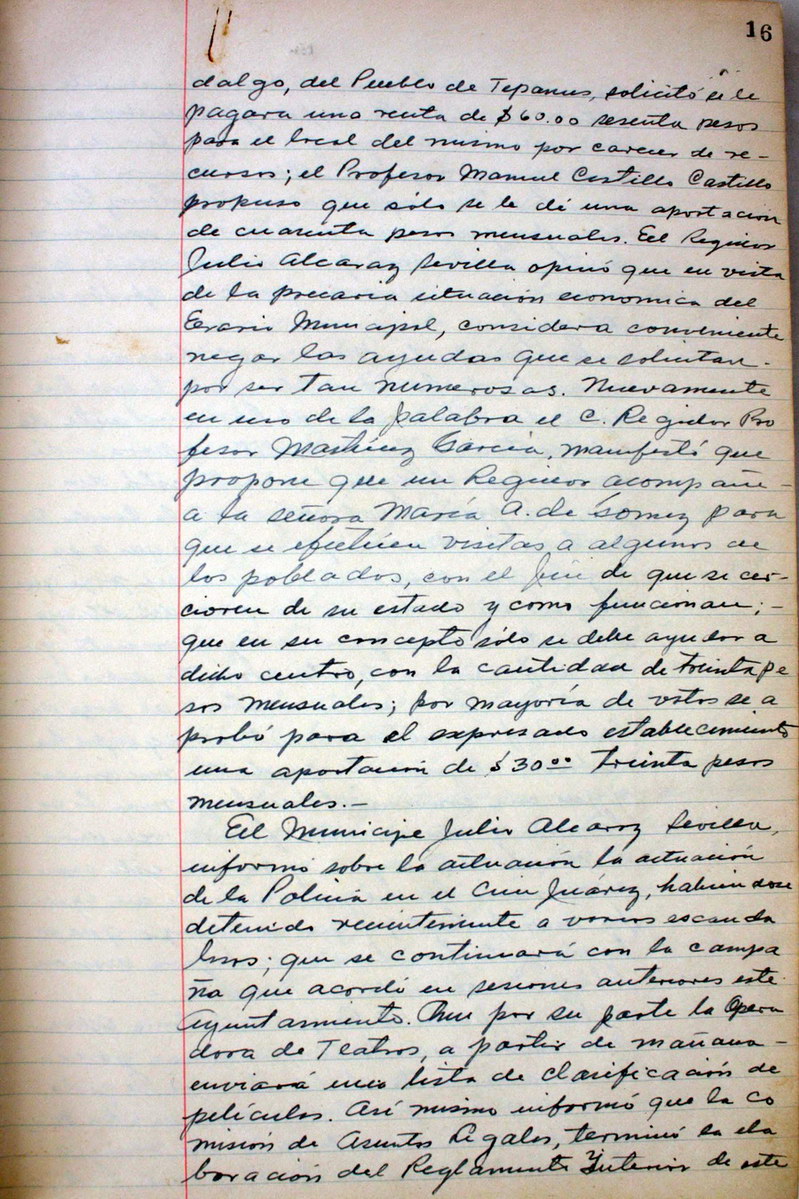 16
dalgo, del Pueblo de Tepames, solicitó se le
pagara una renta de $60.00 sesenta pesos
para el local del mismo por carecer de re-
cursos; el Profesor Manuel Castillo Castillo
propuso que sólo se le dé una aportación
de cuarenta pesos mensuales. El Regidor
Julio Alcaraz Sevilla opinó que en vista
de la precaria situación economica del
Erario Municipal, considera conveniente
negar las ayudas que se solicitan-
por ser tan numerosas. Nuevamente
en uso de la palabra el C. Regidor Pro
fesor Martínez García, manifestó que
propone que un Regidor acompañe-
a la señora María A. de Gómez para
que se efectúen visitas a algunos de
los poblados, con el fin de que se cer-
cioren de su estado y como funcionan;-
que en su concepto sólo se debe ayudar a
dicho centro, con la cantidad de treinta pe
sos mensuales; por mayoría de votos se a
probó para el expresado establecimiento
una aportación de $30.00 treinta pesos
mensuales.-
El Munícipe Julio Alcaraz Sevilla,
informó sobre la actuación la actuación
de la Policía en el Cine Juárez, habiendose
detenido recientemente a varios escanda
losos; que se continuará con la campa
ña que acordó en sesiones anteriores este
Ayuntamiento. Que por su parte la Opera
dora de Teatros, a partir de mañana-
enviará una lista de clasificación de
películas. Así mismo informó que la co
misión de Asuntos Legales, terminó la ela
boración del Reglamento Interior de este